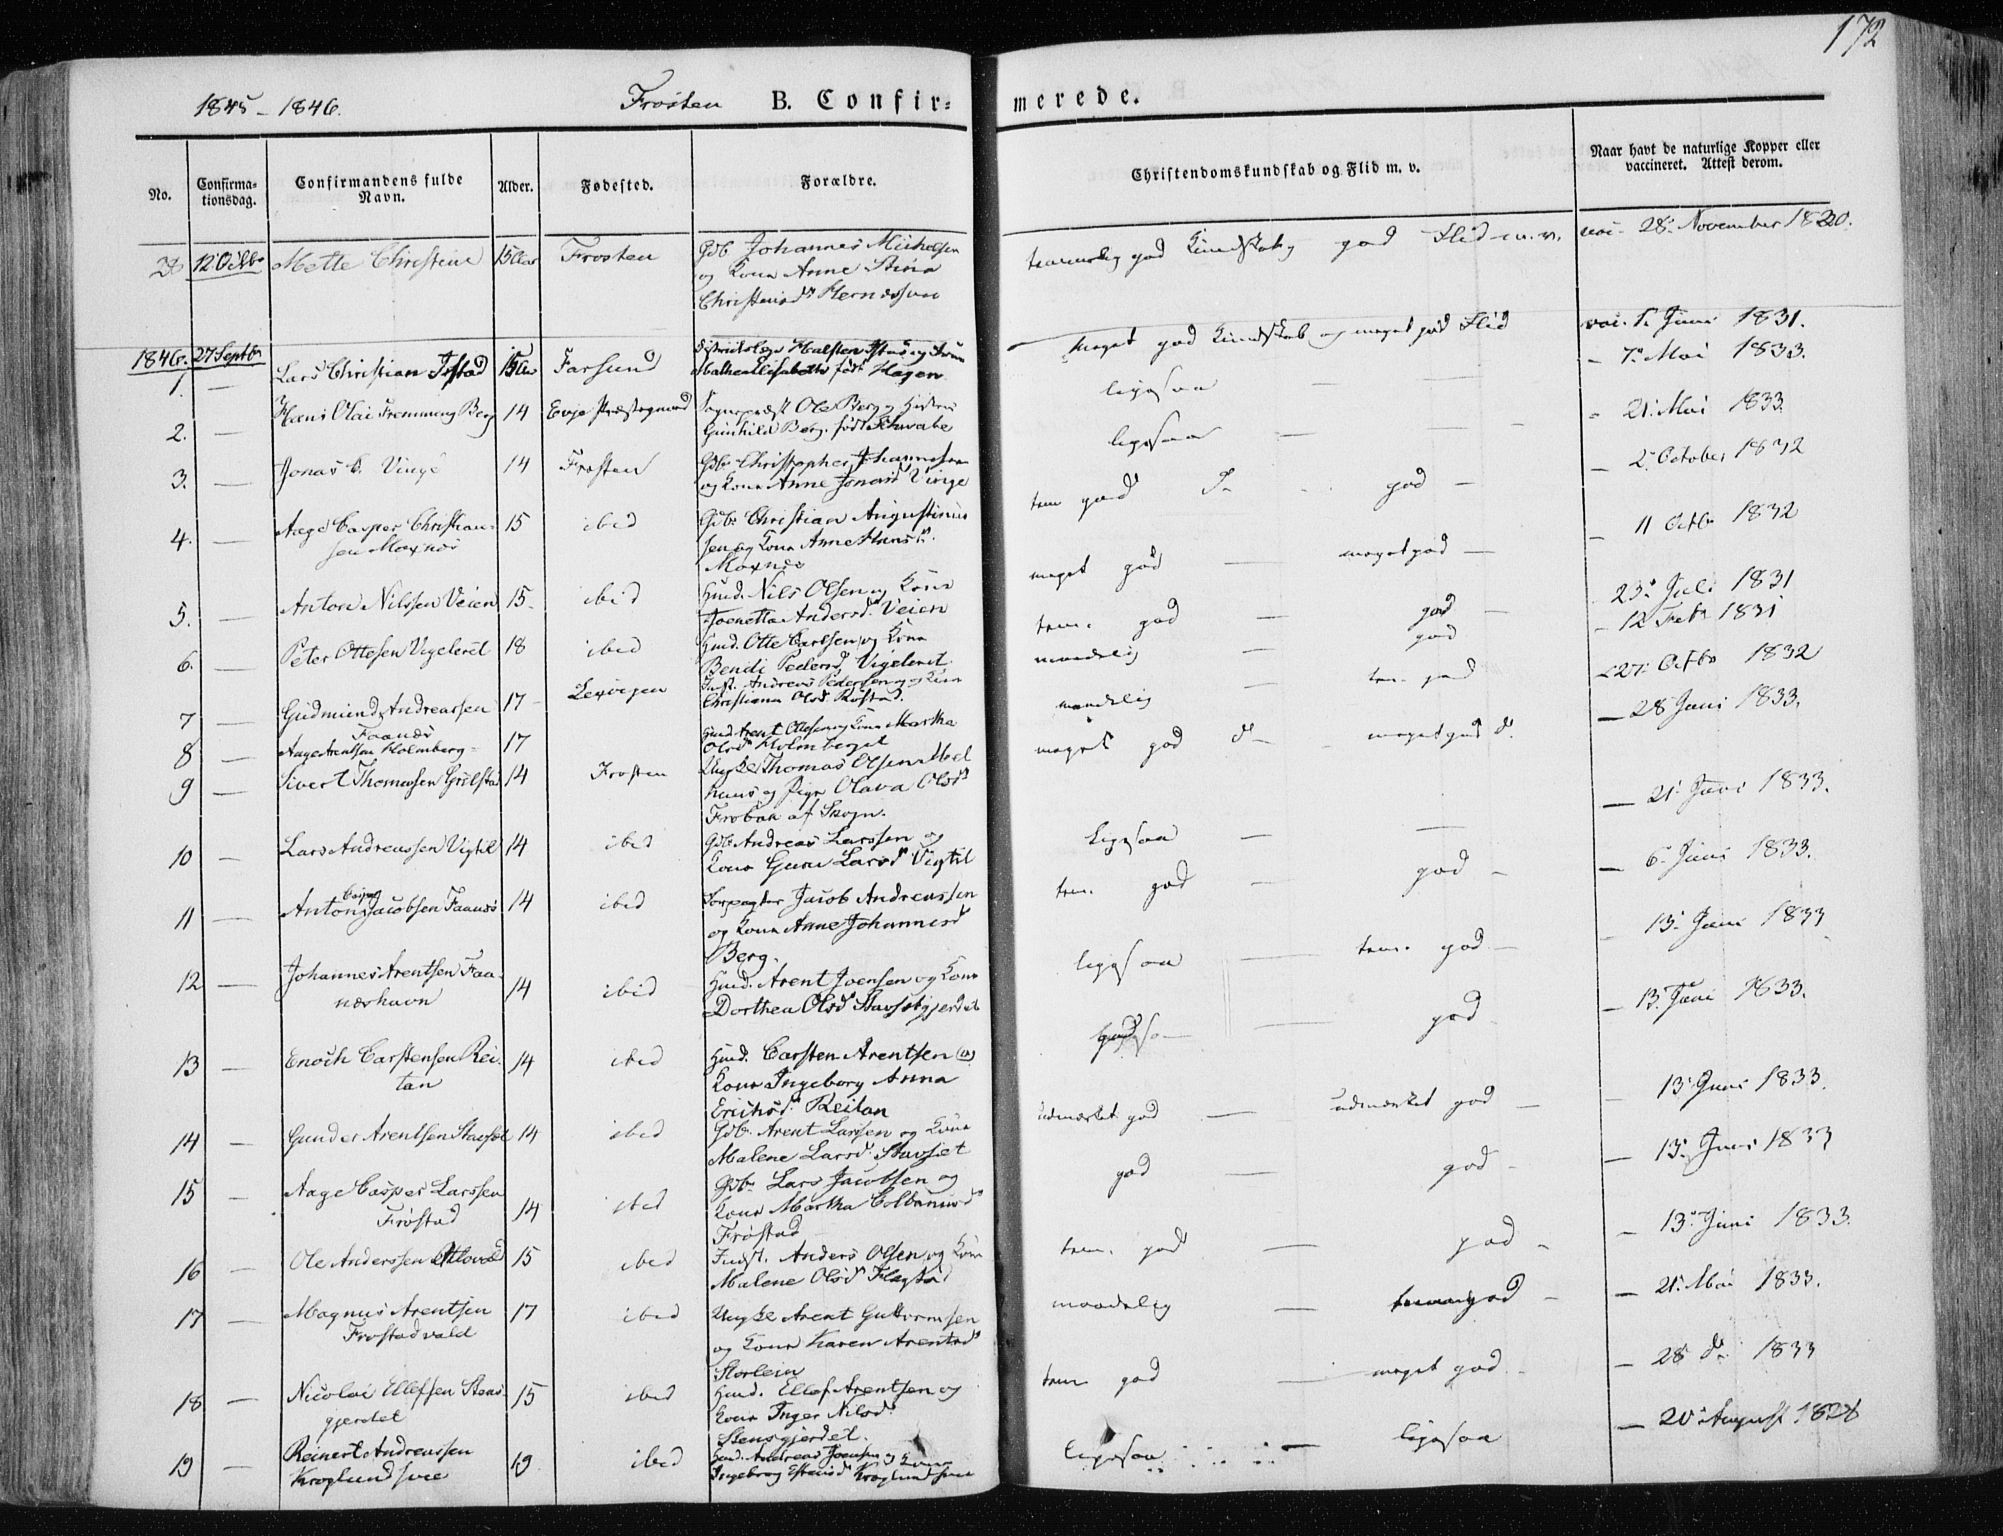 172
1845 - 1846.
Frosten B. Confir-merede.
No.
Confirma-
tionsdag.
Confirmandens fulde
Navn.
Alder.
Fødested.
Forældre.
Christendomskundskab og Flid m. v.
Naar havt de naturlige Kopper eller
vaccineret. Attest derom.
12 Octbr Mette Christine 15 Aar Frosten Gdb Johannes Michelsen
og Kona Anne Stina
god Kundskab god Flid m. v. vac. 28. November 1830.
1846. 27 Septbr
1 — Lars Christian Istad 15 Aar Farsund
født Hagen
Meget god Kundskab og meget god Flid vac. 1. Juni 1831.
2. — Hans Olai Berg 14 Evje Præstegield Sognepræst Ole Berg og Hustru
Gunhild Berg, født Schwabe
ligesaa — 7. Mai 1833.
3. — Jonas C. Vinge 14 Frosten Gdb. Christopher Johannesen
og Kona Anne Jonasd Vinge
ligesaa — 21. Mai 1833.
4. — Aage Casper Christian-
sen Moxnes 15 ibid Gdb. Christian Augustinus-
sen og Kona Anne Hansd.
Moxnes
tem god d — god — 2. October 1832
5. — Anton Nilssen Veien 15 ibid Huusd. Nils Olsen og Kona
Andersd. Veien
meget god — meget god — 11 Octbr 1832
6. — Peter Ottesen Vigeleret 18 ibid Huusd. Otte Carlsen og Kona
Bendi Pedersd. Vigeleret.
tem. god — god — 23. Juli 1831
7 — Gudmund Andreassen
Faanes 17 Lexvigen Indst. Andreas Pedersen og Kona
Christianna Olsd. Rostad.
maadelig — god — 12 Febr 1831
8 — Aage Arntsen Holmberg 17 Huusd Arent Olsen og Kona Martha
Olsd Holmberget
maadelig — tem. god — 27. Octbr 1832
9 — Sivert Thomassen 14 Frosten Ungk. Thomas Olsen
og Pige Olava Olsd
af Skogn.
meget god d — meget god d. — 28 Juni 1833.
10 — Lars Andreassen Vigtil 14 ibid Gdb. Andreas Larssen og
Kona Guru Larsd Vigtil
Ligesaa — — 21. Juni 1833.
11 — Anton Jacobsen Faanes 14 ibid Forpagter Jacob Andreassen
og Kona Anne Johannesd
Berg.
tem. god — god — 6. Juni 1833.
12 — Johannes Arentsen Faa-
næshavn 14 ibid Huusd. Arent Joensen og Kona
Dorthea Olsd
ligesaa — tem. god — 13. Juni 1833
13 — Enoch Carstensen Rei-
tan 14 ibid Huusd. Carsten Arentsen og
Kona Ingeborg Anna
Erichsd. Reitan
— god — 13. Juni 1833.
14 — Gunder Arentsen Stavset 14 ibid Gdb. Arent Larsen og Kona
Malene Larsd. Stavset
udmærket god — udmærket god — 13. Juni 1833.
15 — Aage Casper Larssen
Frøstad 14 ibid Gdb. Lars Jacobsen og
Kona Martha
Frøstad
god — god — 13. Juni 1833
16 — Ole Anderssen 15 ibid Indst. Anders Olsen og Kona
Malene Olsd
tem. god — god — 13. Juni 1833.
17 — Magnus Arentsen
Frostadvald 17 ibid Ungk. Arent Guttormsen
og Kona Karen Arentsd
Storlein
maadelig — god — 21. Mai 1833.
18 — Nicolai Ellefsen Stens-
gjerdet 15 ibid Huusd. Ellef Arentsen og
Kona Inger Nilsd.
Stensgjerdet.
tem god — meget god — 28 d. 1833
19 — Reinert Andreassen
Kroglundsvee 19 ibid Huusd. Andreas Joensen og Kona
Ingebrog Kroglundsvee
ligesaa — ligesaa — 20. August 1828